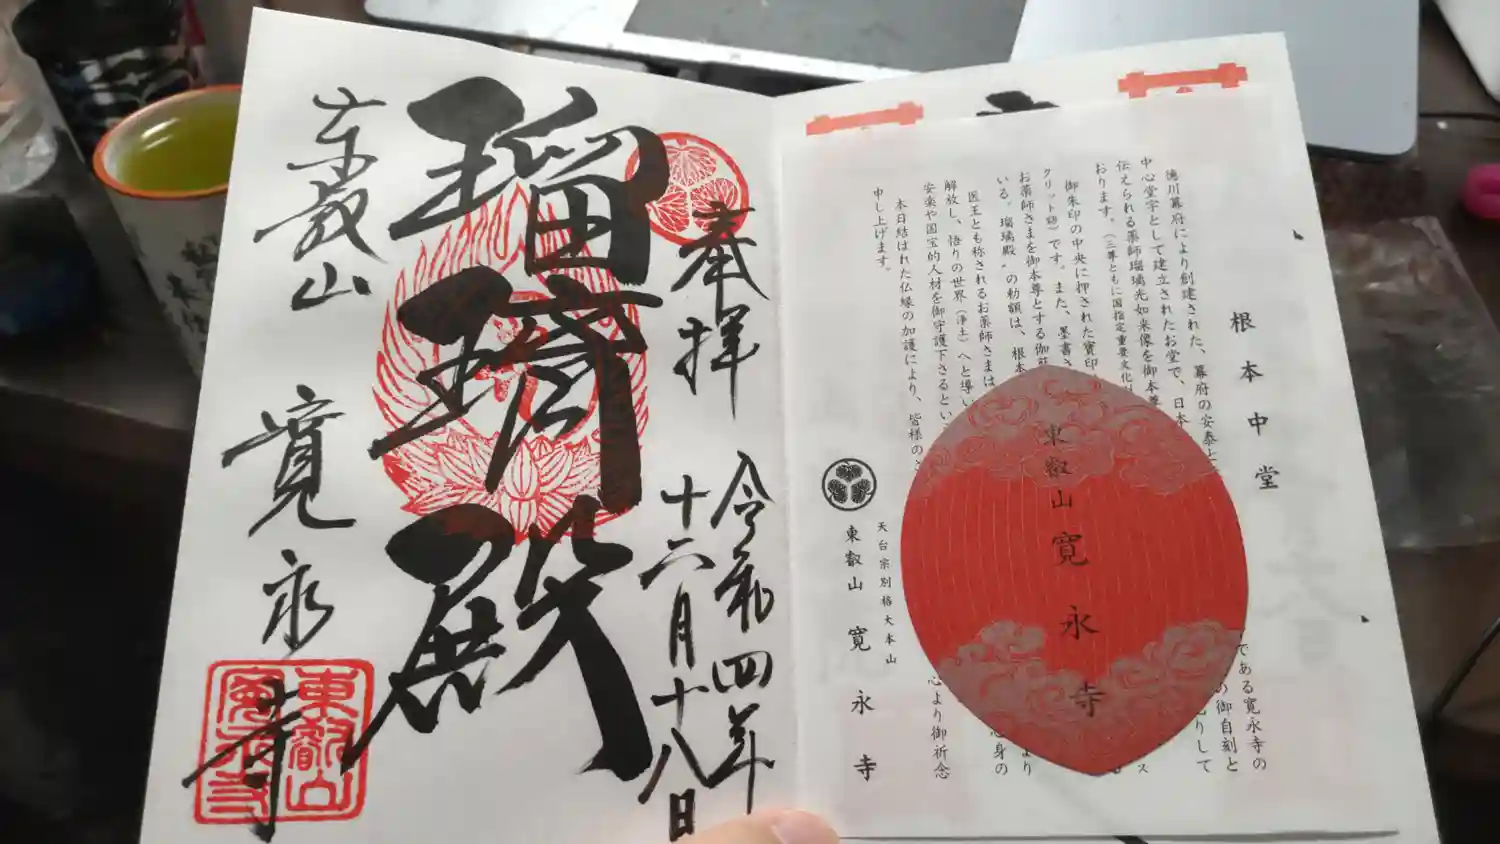 根本中堂
徳川幕府により創建された、幕府の安泰と
である寛永寺の
中心堂宇として建立されたお堂で、日本
の御自刻と
伝えられる薬師瑠璃光如来像を御本尊
りして
おります。（三尊ともに国指定重要文化
御朱印の中央に押された寶印
ス
クリット
です。また、墨書さ
より
お薬師さまを御本尊とする伽
身の
いる。瑠璃殿〟の勅額は、根本
医王とも称されるお薬師さまは
解放し、悟りの世界（浄土）へと導い
心より御祈念
安楽や国宝的人材を御守護下さるとい
本日結ばれた仏縁の加護により、皆様の
申し上げます。
天台宗別格大本山
東叡山 寛永寺
東叡山寛永寺
奉拝
令和四年
十二月十八日
瑠璃殿
東叡山 寛永寺
東叡山
寛永寺